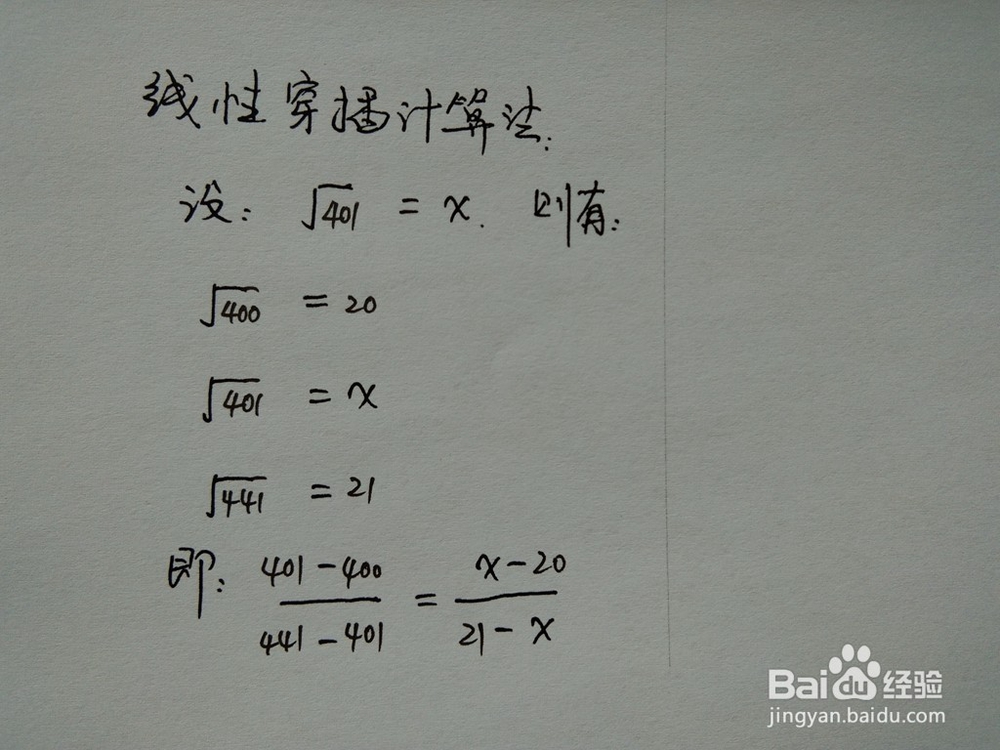 线性穿插计算法:
设: √401 = x. 则有:
√400 = 20
√401 = x
√441 = 21
即: (401-400)/(441-401) = (x-20)/(21-x)
Baidu 经验
jingyan.baidu.com